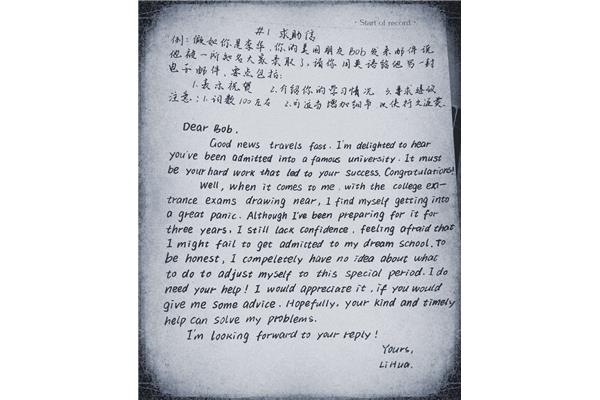 · Start of record ·
#1 求助信
例:假如你是李华,你的美国朋友Bob发来邮件说
他被一所知名大学录取了,请你用英语给他写一封
电子邮件,要点包括:
1.表示祝贺 2.介绍你的学习情况 3.寻求建议
注意:1.词数100左右 2.可适当增加细节以使行文连贯.
Dear Bob,
Good news travels fast. I'm delighted to hear
you've been admitted into a famous university. It must
be your hard work that led to your success. Congratulations!
Well, when it comes to me, with the college en-
trance exams drawing near, I find myself getting into
a great panic. Although I've been preparing for it for
three years, I still lack confidence, feeling afraid that
I might fail to get admitted to my dream school. To
be honest, I compeletely have no idea about what
to do to adjust myself to this special period. I do
need your help! I would appreciate it, if you would
give me some advice. Hopefully, your kind and timely
help can solve my problems.
I'm looking forward to your reply!
Yours,
Li Hua.